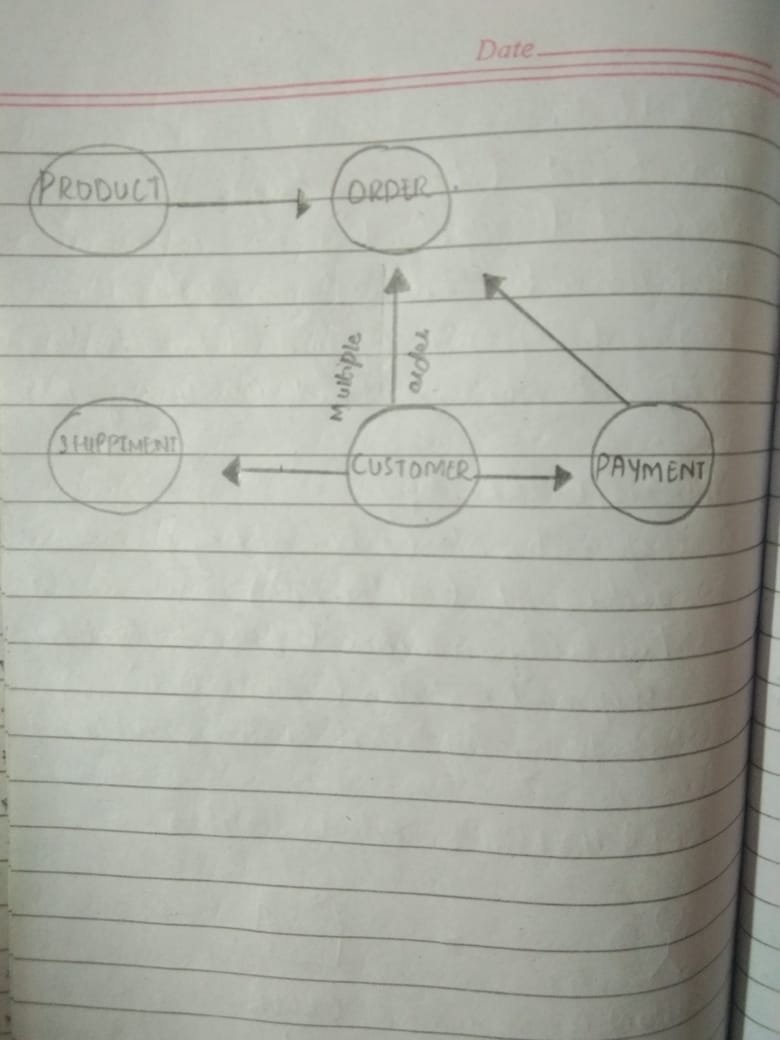 Date
PRODUCT
ORDER
Multiple
order
SHIPPTMENT
CUSTOMER
PAYMENT